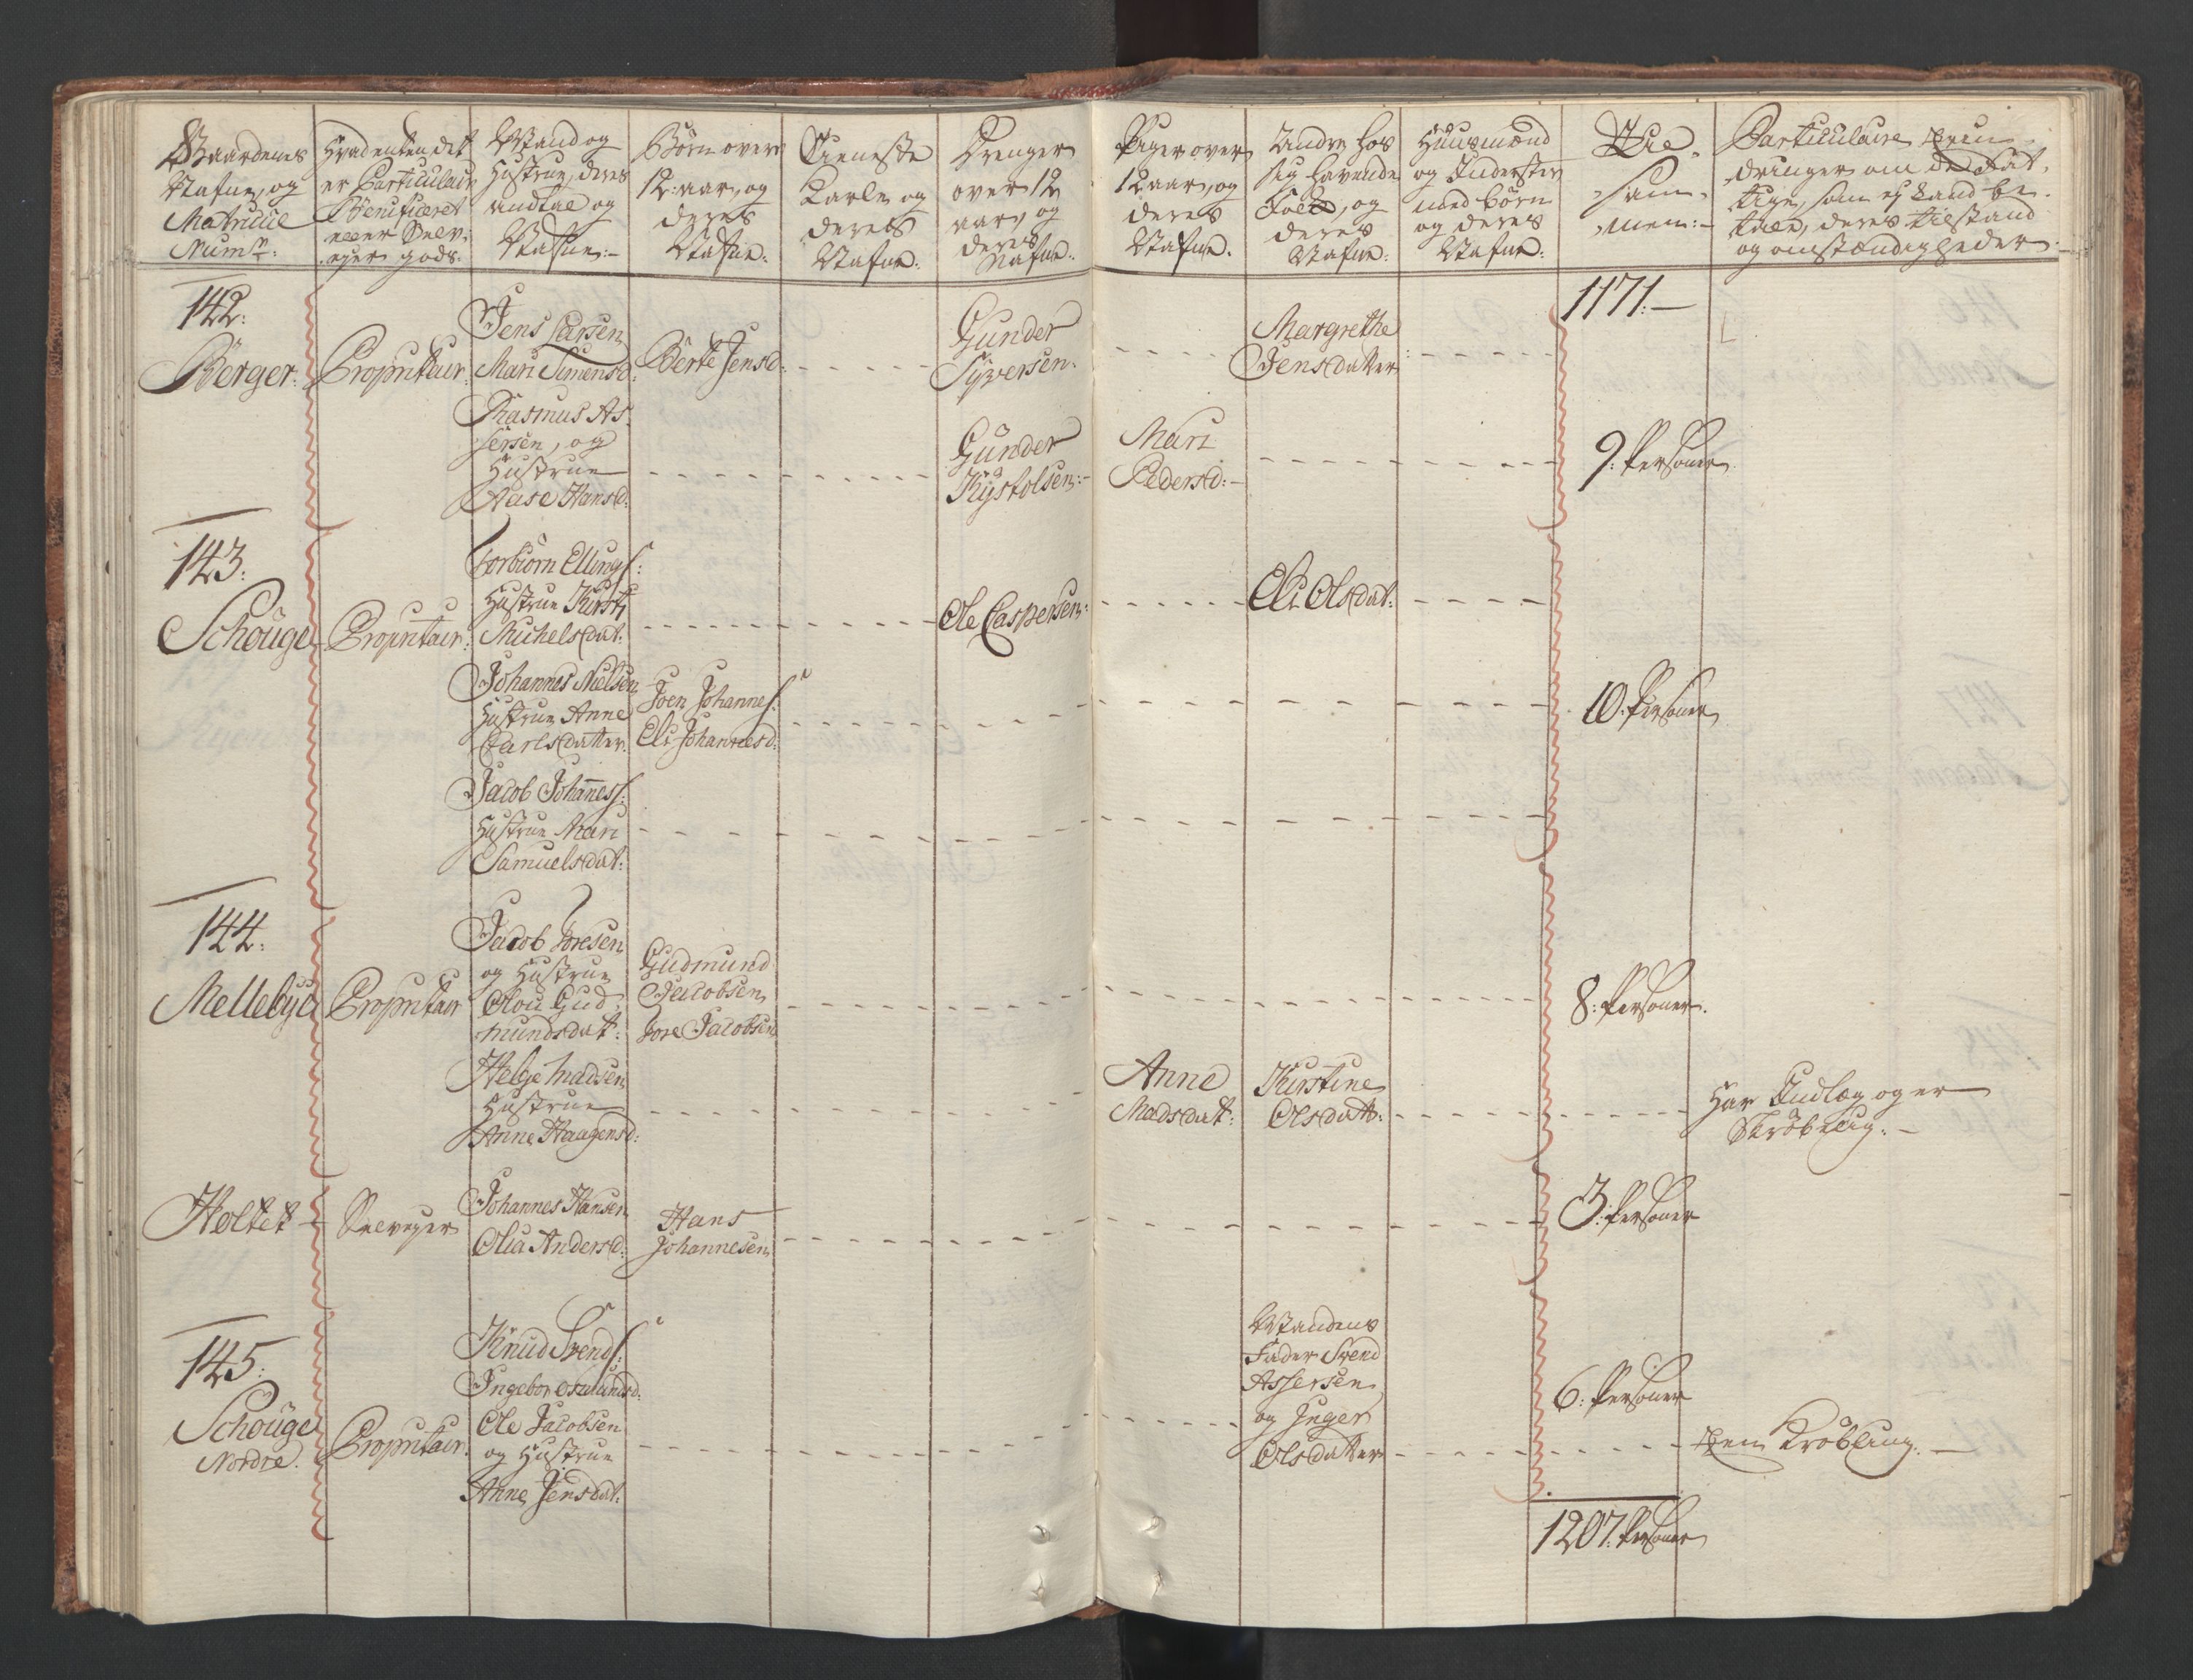 Gaardenes
Nafne, og
Matricul
Num<sup>r</sup>:
Hvad enten det
er Particulair
Benificeret
eller Selv-
ejer gods.
Mand og
Hustrue, deres
andtal og
Nafne:-
Børn over
12: aar, og
deres
Nafne:
Tieneste
Karle og
deres
Nafne.
Drenger
over 12
aar, og
deres
Nafne.
Piger over
12 aar, og
deres
Nafne.
Andre hos
sig havende
Folk, og
deres
Nafne.
Huusmænd
og Inderster
med børn
og deres
Nafne.
Til-
sam-
men:-
Particulaire
dringer om de Fat-
tige, som ej kand be-
tale, deres tilstand
og omstændigheder.
1171.-
142.
Berger.
Propritair.
Jens Larsen
Mari Simensd:
Berte Jensd:
Gunder
Syversen.
Margrethe
Jensdatter
Rasmus As-
sersen, og
Hustrue
Aase Hansd:
Gunder
Kystolsen:-
Mari
Pedersd:-
9: Personer
143.
Schouge
Propritair.
Torbiørn Ellings:
Hustrue Kirsti
Michelsdat:
Ole Caspersen:
Eli Olsdat:
Johannes Nielsen
Hustrue Anne
Carlsdatter.
Joen Johannes:
Eli Johannesd:
10. Personer
Jacob Johanes:
Hustrue Mari
Samuelsdat:
144.
Mellebye
Propritair
Jacob Toresen
og Hustrue
Olou Gud-
mundsdat:
Gudmund
Jacobsen
Tore Jacobsen
8: Personer.
Helge Madsen
Hustrue
Anne Haagensd:
Anne
Madsdat:
Kirstine
Olsdatt:
Har Indlæg og er
Skrøbelig.-
Holtet
Selvejer
Johannes Hansen
Olia Andersd:
Hans
Johannesen
3: Personer
145.
Schouge
Nordre.
Propritair.
Knud Svends:
Ingebor Osmundsd:
Ole Jacobsen
og Hustrue
Anne Jensdat:
Mandens
Fader Svend
Assersen
og Inger
Olsdatter
6: Personer
1207. Personer